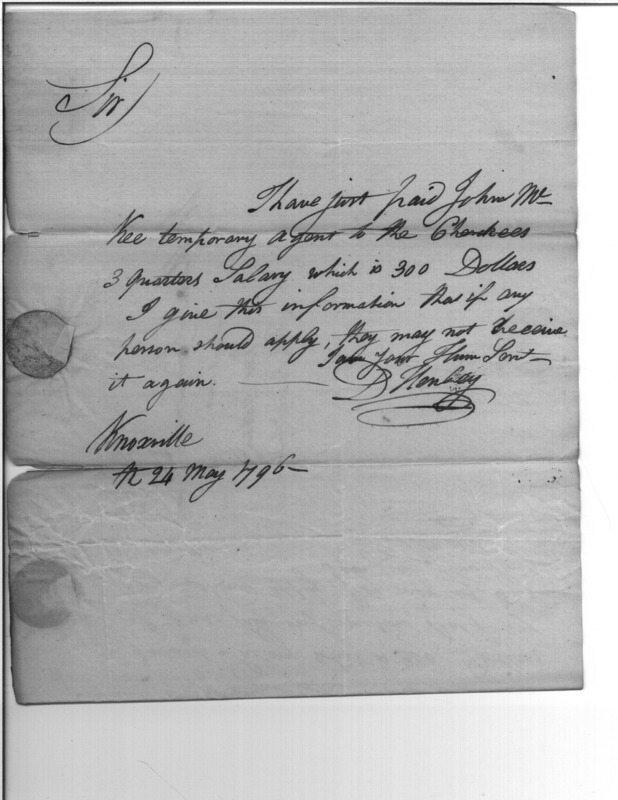 Sir
I have just paid John Mc
Kee temporary agent to the Cherokees
3 quarters Salary which is 300 Dollars
I give this information that if any
person should apply, they may not receive
it again.
I am Your Hum Servt
D Henley
Knoxville
24 May 1796